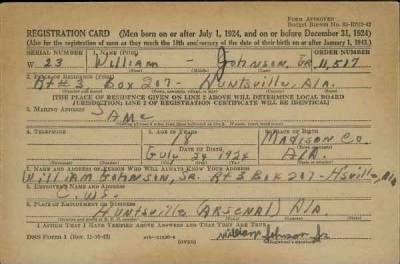 FORM APPROVED
Budget Bureau No. 33-R012-42
REGISTRATION CARD (Men born on or after July 1, 1924, and on or before December 31, 1924)
(Also for the registration of men as they reach the 18th anniversary of the date of their birth on or after January 1, 1943.)
1. NAME (Print)
W 23 William - Johnson, Jr. 11,517
2. PLACE OF RESIDENCE (Print)
Rt #3 Box 207 - Huntsville, Ala.
[THE PLACE OF RESIDENCE GIVEN ON LINE 2 ABOVE WILL DETERMINE LOCAL BOARD
JURISDICTION; LINE 2 OF REGISTRATION CERTIFICATE WILL BE IDENTICAL]
3. MAILING ADDRESS
Same
4. TELEPHONE
PLACE OF BIRTH
Madison Co.
DATE OF BIRTH
July 24 1924
Ala.
7. NAME AND ADDRESS OF PERSON WHO WILL ALWAYS KNOW YOUR ADDRESS
William Johnson, Sr. Rt 3 Box 207 - H'sville, Ala
8. EMPLOYER'S NAME AND ADDRESS
C.W.S.
9. PLACE OF EMPLOYMENT OR BUSINESS
Huntsville (Arsenal) Ala
I AFFIRM THAT I HAVE VERIFIED ABOVE ANSWERS AND THAT THEY ARE TRUE.
DSS Form 1
(OVER)
William Johnson Jr